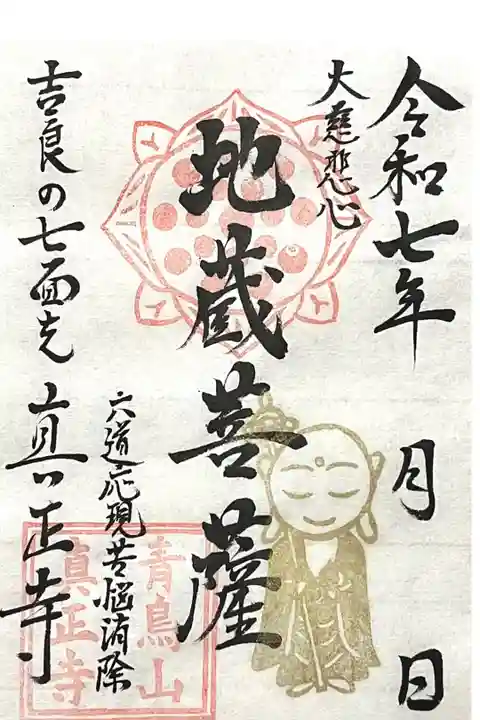 令和七年 月 日
大慈悲心
地蔵菩薩
六道応現苦悩消除
吉良の七面さん 真正寺
青鳥山
真正寺